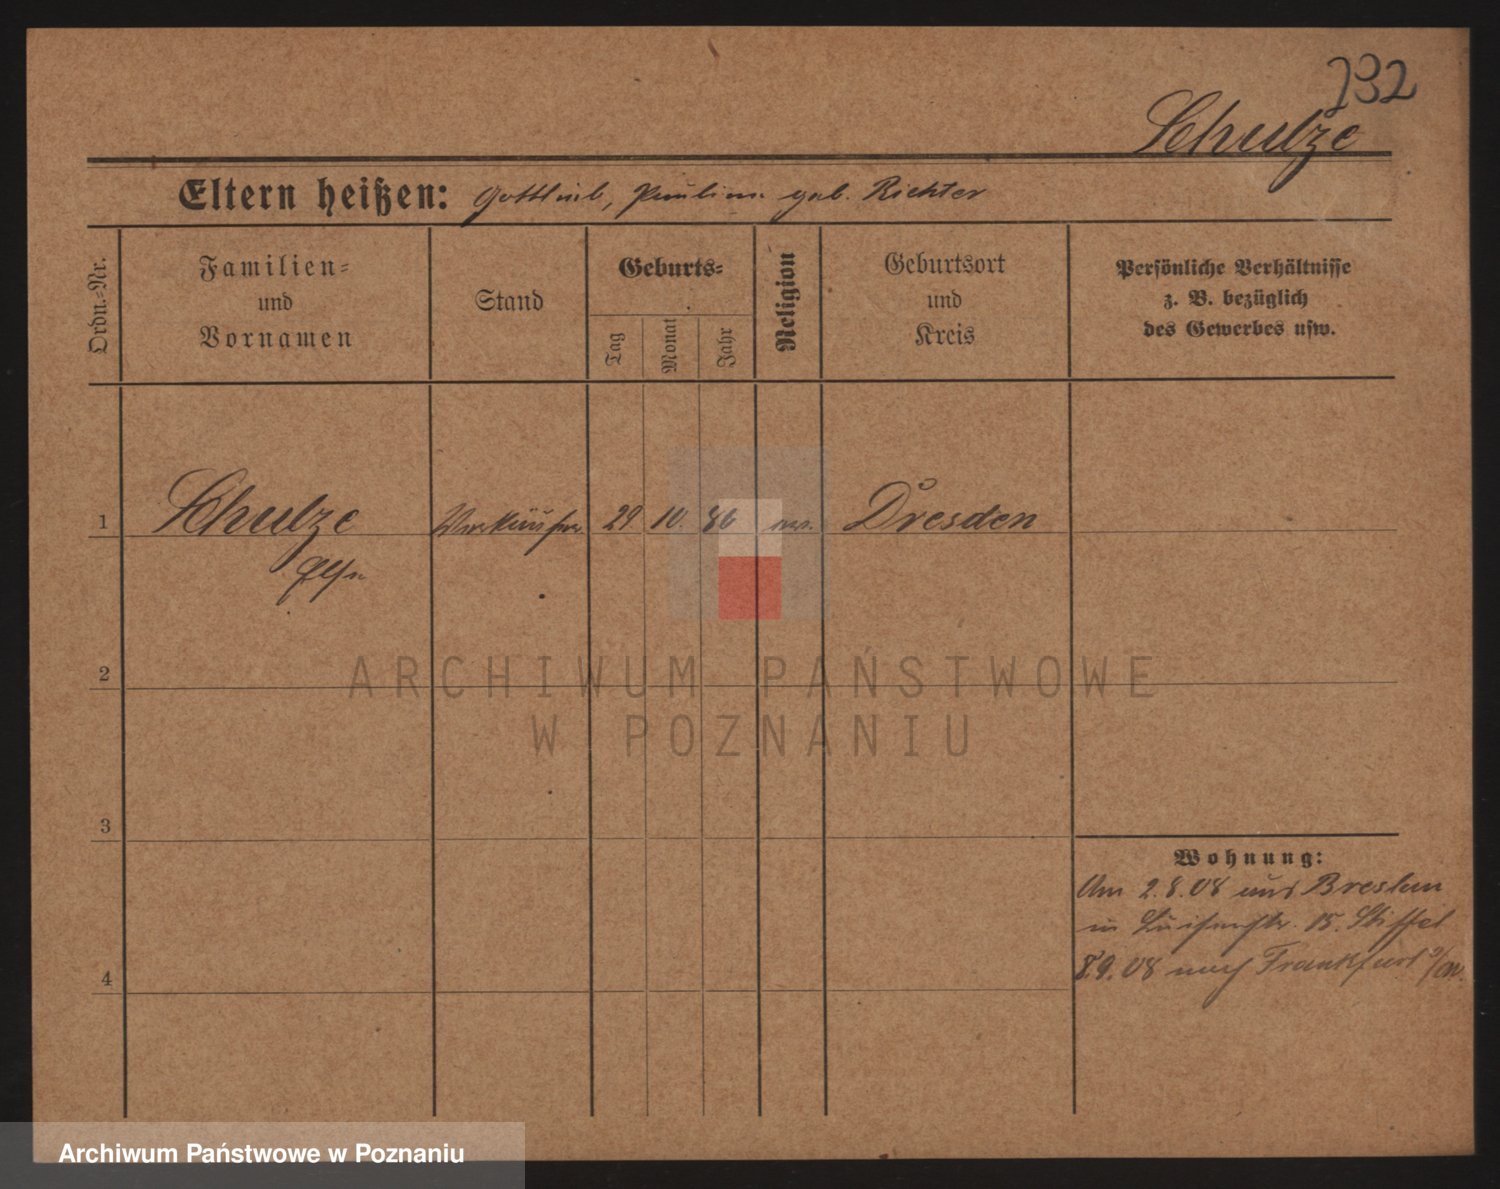 732
Schulze
Eltern heißen: Gottlieb, Pauline geb. Richter
Ordn.-Nr.
Familien-
und
Vornamen
Stand
Geburts-
Tag
Monat
Jahr
Religion
Geburtsort
und
Kreis
Persönliche Verhältnisse
z. B. bezüglich
des Gewerbes usw.
1 Schulze 29 10. 86 Dresden
Else
2
ARCHIWUM PAŃSTWOWE
W POZNANIU
3
Wohnung:
Am 2.8.08 aus Breslau
in Luisenstr. 15.
8.9.08 nach Frankfurt a/M.
4
Archiwum Państwowe w Poznaniu